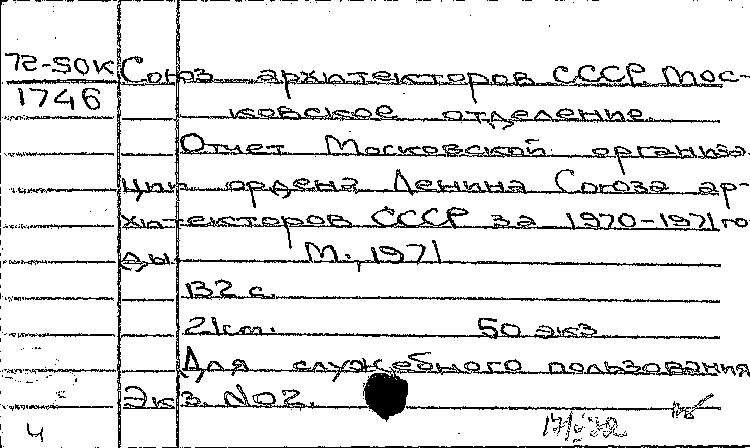 72-50к Союз архитекторов СССР. Мос-
1746
ковское отделение.
Отчет Московской организа
ции ордена Ленина Союза ар-
хитекторов СССР за 1970-1971 го
ды М., 1971
132 с.
21 см. 50 экз
Для служебного пользования
Экз. No2.
4